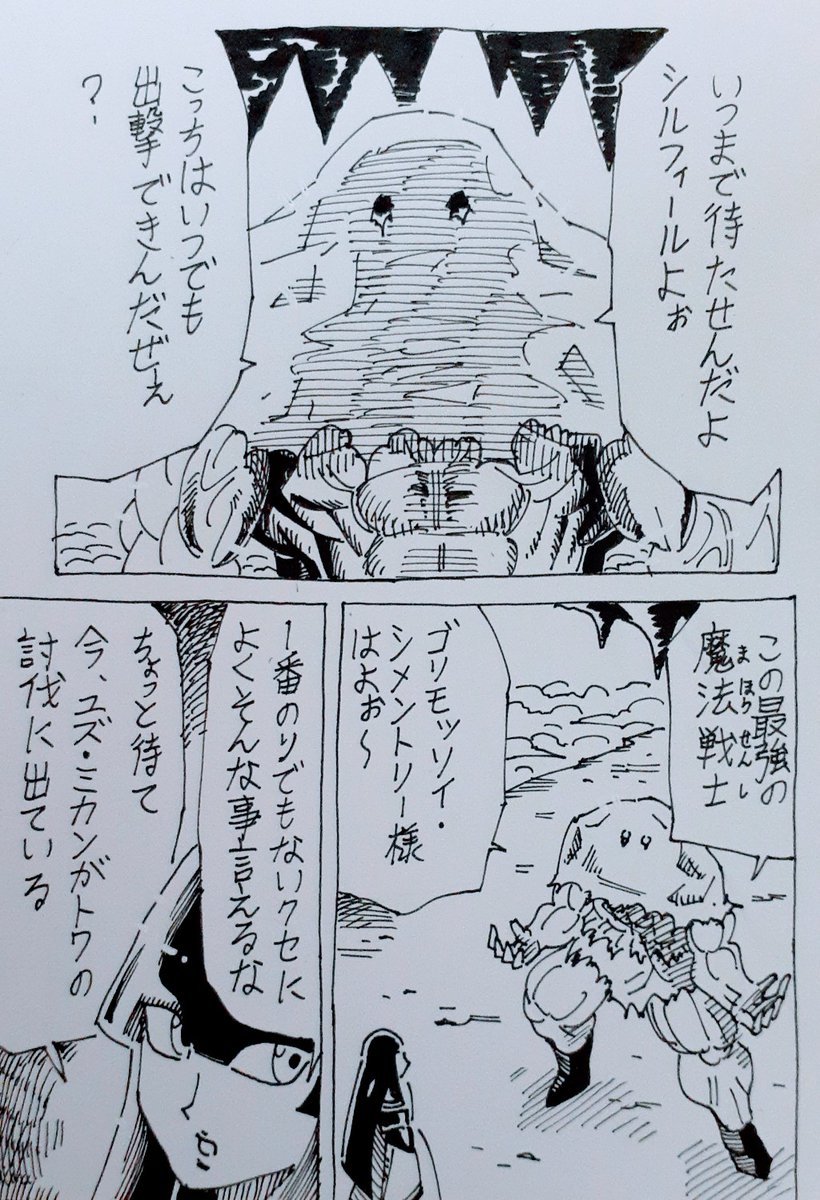 いつまで待たせんだよ
シルフィールよぉ
こっちはいつでも
出撃できんだぜぇ
?
この最強の
魔法戦士
まほうせんし
ゴリモッソイ・
シメントリー様
はよぉ〜
1番のりでもないクセに
よくそんな事言えるな
ちょっと待て
今、ユズ・ミカンがトワの
討伐に出ている